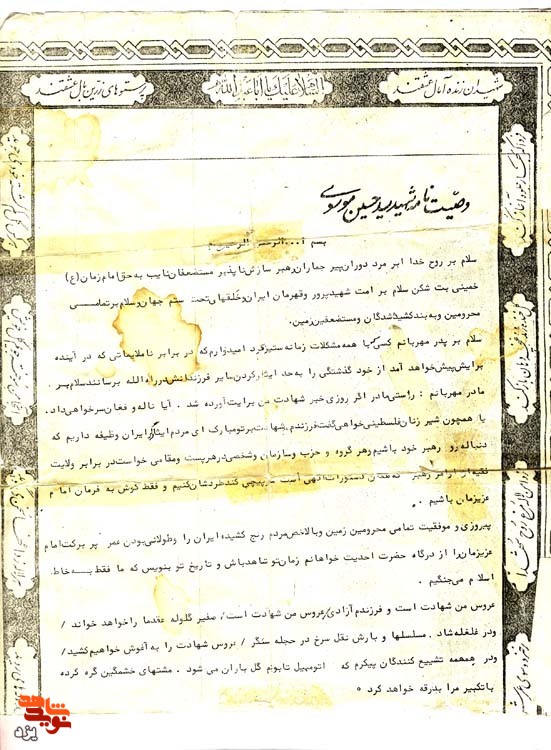 شهیدان زنده آمال عشقند
السلام علیک یا اباعبدالله
پرستوهای زرین بال عشقند
وصیت نامه شهید سید حسین موسوی
بسم ا... الرحمن الرحیم
سلام بر روح خدا ابر مرد دوران پیر جماران و رهبر سازش ناپذیر مستضعفان نایب به حق امام زمان (ع)
خمینی بت شکن سلام بر امت شهیدپرور و قهرمان ایران و خلقهای تحت ستم جهان و سلام بر تمامی
محرومین و به بند کشیدشدگان و مستضعفین زمین.
سلام بر پدر مهربانم کسی که با همه مشکلات زمانه ستیز کرد امیدوارم که در برابر ناملایماتی که در آینده
برایش پیش خواهد آمد از خود گذشتگی را به حد ایثار کردن سایر فرزندانش در راه الله برسانند سلام بر
مادر مهربانم : راستی مادر اگر روزی خبر شهادت من برایت آورده شد . آیا ناله و فغان سر خواهی داد.
یا همچون شیر زنان فلسطینی خواهی گفت فرزندم شهادت بر تو مبارک ای مردم ایثارگر ایران وظیفه داریم که
دنباله رو رهبر خود باشیم و هر گروه و حزب و سازمان و شخصی در هر پست و مقامی خواست در برابر ولایت
فقیه از اوامر رهبر که همان دستورات الهی است سرپیچی کند طردشان کنیم و فقط گوش به فرمان امام
عزیزمان باشیم .
پیروزی و موفقیت تمامی محرومین زمین و بالاخص مردم رنج کشیده ایران را و طولانی بودن عمر پر برکت امام
عزیزمان را از درگاه حضرت احدیت خواهانم زمان تو شاهد باش و تاریخ تو بنویس که ما فقط به خاطر
اسلام می‌جنگیم .
عروس من شهادت است و فرزندم آزادی/ عروس من شهادت است/ صفیر گلوله عقدما را خواهد خواند /
و در غلغله شاد . مسلسلها و بارش نقل سرخ در حجله سنگر / عروس شهادت را به آغوش خواهیم کشید/
و در همهمه تشییع کنندگان پیکرم که اتومبیل تابوتم گل باران می شود . مشتهای خشمگین گره کرده
با تکبیر مرا بدرقه خواهد کرد .
نوید شاهد
یزد